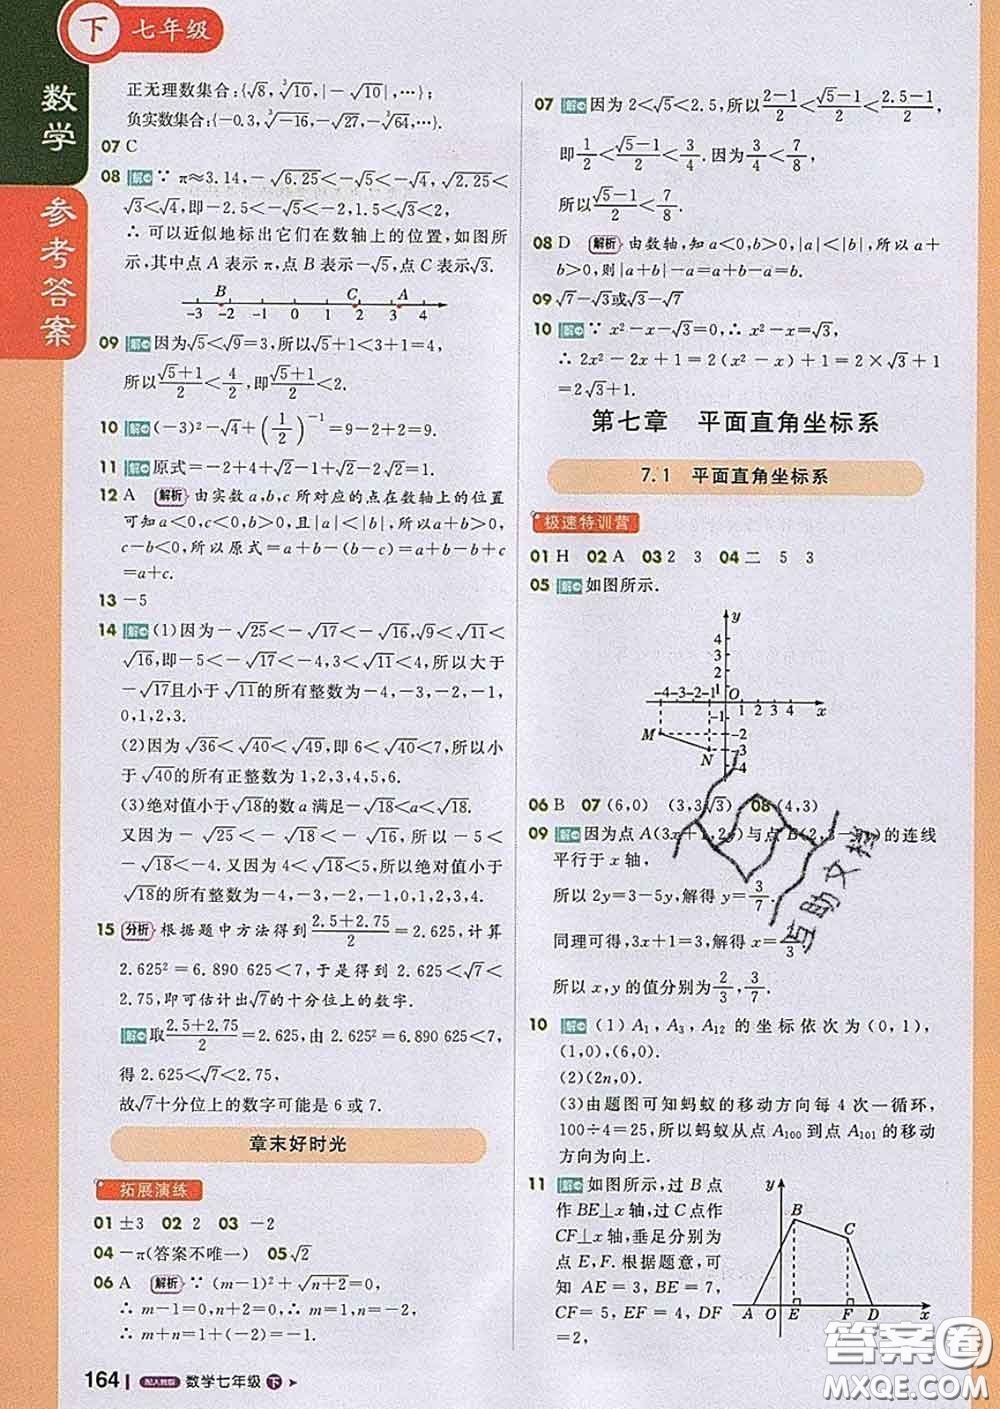 下 七年级
数学
参考答案
正无理数集合:{√8,∛10,|-√10|,…};
负实数集合:{-0.3,∛-16,-√27,-∛64,…}.
07 C
08 解 ∵ π≈3.14,-√6.25<-√5<-√4,√2.25<
√3<√4,即-2.5<-√5<-2,1.5<√3<2,
∴ 可以近似地标出它们在数轴上的位置,如图所
示,其中点 A 表示 π,点 B 表示-√5,点 C 表示√3.
B C A
-3 -2 -1 0 1 2 3 4
09 解 因为√5<√9=3,所以√5+1<3+1=4,
所以(√5+1)/2<4/2,即(√5+1)/2<2.
10 解 (-3)²-√4+(1/2)⁻¹=9-2+2=9.
11 解 原式=-2+4+√2-1-1=√2.
12 A 解析 由实数 a,b,c 所对应的点在数轴上的位置
可知 a<0,c<0,b>0,且|a|<|b|,所以 a+b>0,
c-b<0,所以原式=a+b-(b-c)=a+b-b+c=
a+c.
13 -5
14 解 (1)因为-√25<-√17<-√16,√9<√11<
√16,即-5<-√17<-4,3<√11<4,所以大于
-√17且小于√11的所有整数为-4,-3,-2,-1,
0,1,2,3.
(2)因为√36<√40<√49,即 6<√40<7,所以小
于√40的所有正整数为 1,2,3,4,5,6.
(3)绝对值小于√18的数 a 满足-√18<a<√18.
又因为-√25<-√18<-√16,所以-5<
-√18<-4.又因为 4<√18<5,所以绝对值小于
√18的所有整数为-4,-3,-2,-1,0,1,2,3,4.
15 分析 根据题中方法得到(2.5+2.75)/2=2.625,计算
2.625²=6.890 625<7,于是得到 2.625<√7<
2.75,即可估计出√7的十分位上的数字.
解 取(2.5+2.75)/2=2.625,由 2.625²=6.890 625<7,
得 2.625<√7<2.75,
故√7十分位上的数字可能是 6 或 7.
章末好时光
拓展演练
01 ±3 02 2 03 -2
04 -π(答案不唯一) 05 √2
06 A 解析 ∵ (m-1)²+√(n+2)=0,
∴ m-1=0,n+2=0,∴ m=1,n=-2,
∴ m+n=1+(-2)=-1.
164 配人教版 数学七年级 下
07 解 因为 2<√5<2.5,所以(2-1)/2<(√5-1)/2<(2.5-1)/2,
即1/2<(√5-1)/2<3/4.因为3/4<7/8,
所以(√5-1)/2<7/8.
08 D 解析 由数轴,知 a<0,b>0,|a|<|b|,所以 a+
b>0,则|a+b|-a=a+b-a=b.
09 √7-√3或√3-√7
10 解 ∵ x²-x-√3=0,∴ x²-x=√3,
∴ 2x²-2x+1=2(x²-x)+1=2×√3+1
=2√3+1.
第七章 平面直角坐标系
7.1 平面直角坐标系
极速特训营
01 H 02 A 03 2 3 04 二 5 3
05 解 如图所示.
y
4
3
2
1
-4-3-2-1 O 1 2 3 4 x
-1
M -2
N -3
-4
06 B 07 (6,0) (3,3√3) 08 (4,3)
09 解 因为点 A(3x+1,2y)与点 B(2,3-5y)的连线
平行于 x 轴,
所以 2y=3-5y,解得 y=3/7.
同理可得,3x+1=3,解得 x=2/3.
所以 x,y 的值分别为2/3,3/7.
10 解 (1) A₁,A₃,A₁₂ 的坐标依次为(0,1),
(1,0),(6,0).
(2)(2n,0).
(3)由题图可知蚂蚁的移动方向每 4 次一循环,
100÷4=25,所以蚂蚁从点 A₁₀₀ 到点 A₁₀₁ 的移动
方向为向上.
11 解 如图所示,过 B 点
作 BE⊥x 轴,过 C 点作
CF⊥x 轴,垂足分别为
点 E,F. 根据题意,可
知 AE=3,BE=7,
CF=5,EF=4,DF
=2,
y B C
A O E F D x
互助文档
答案圈
MXQE.COM